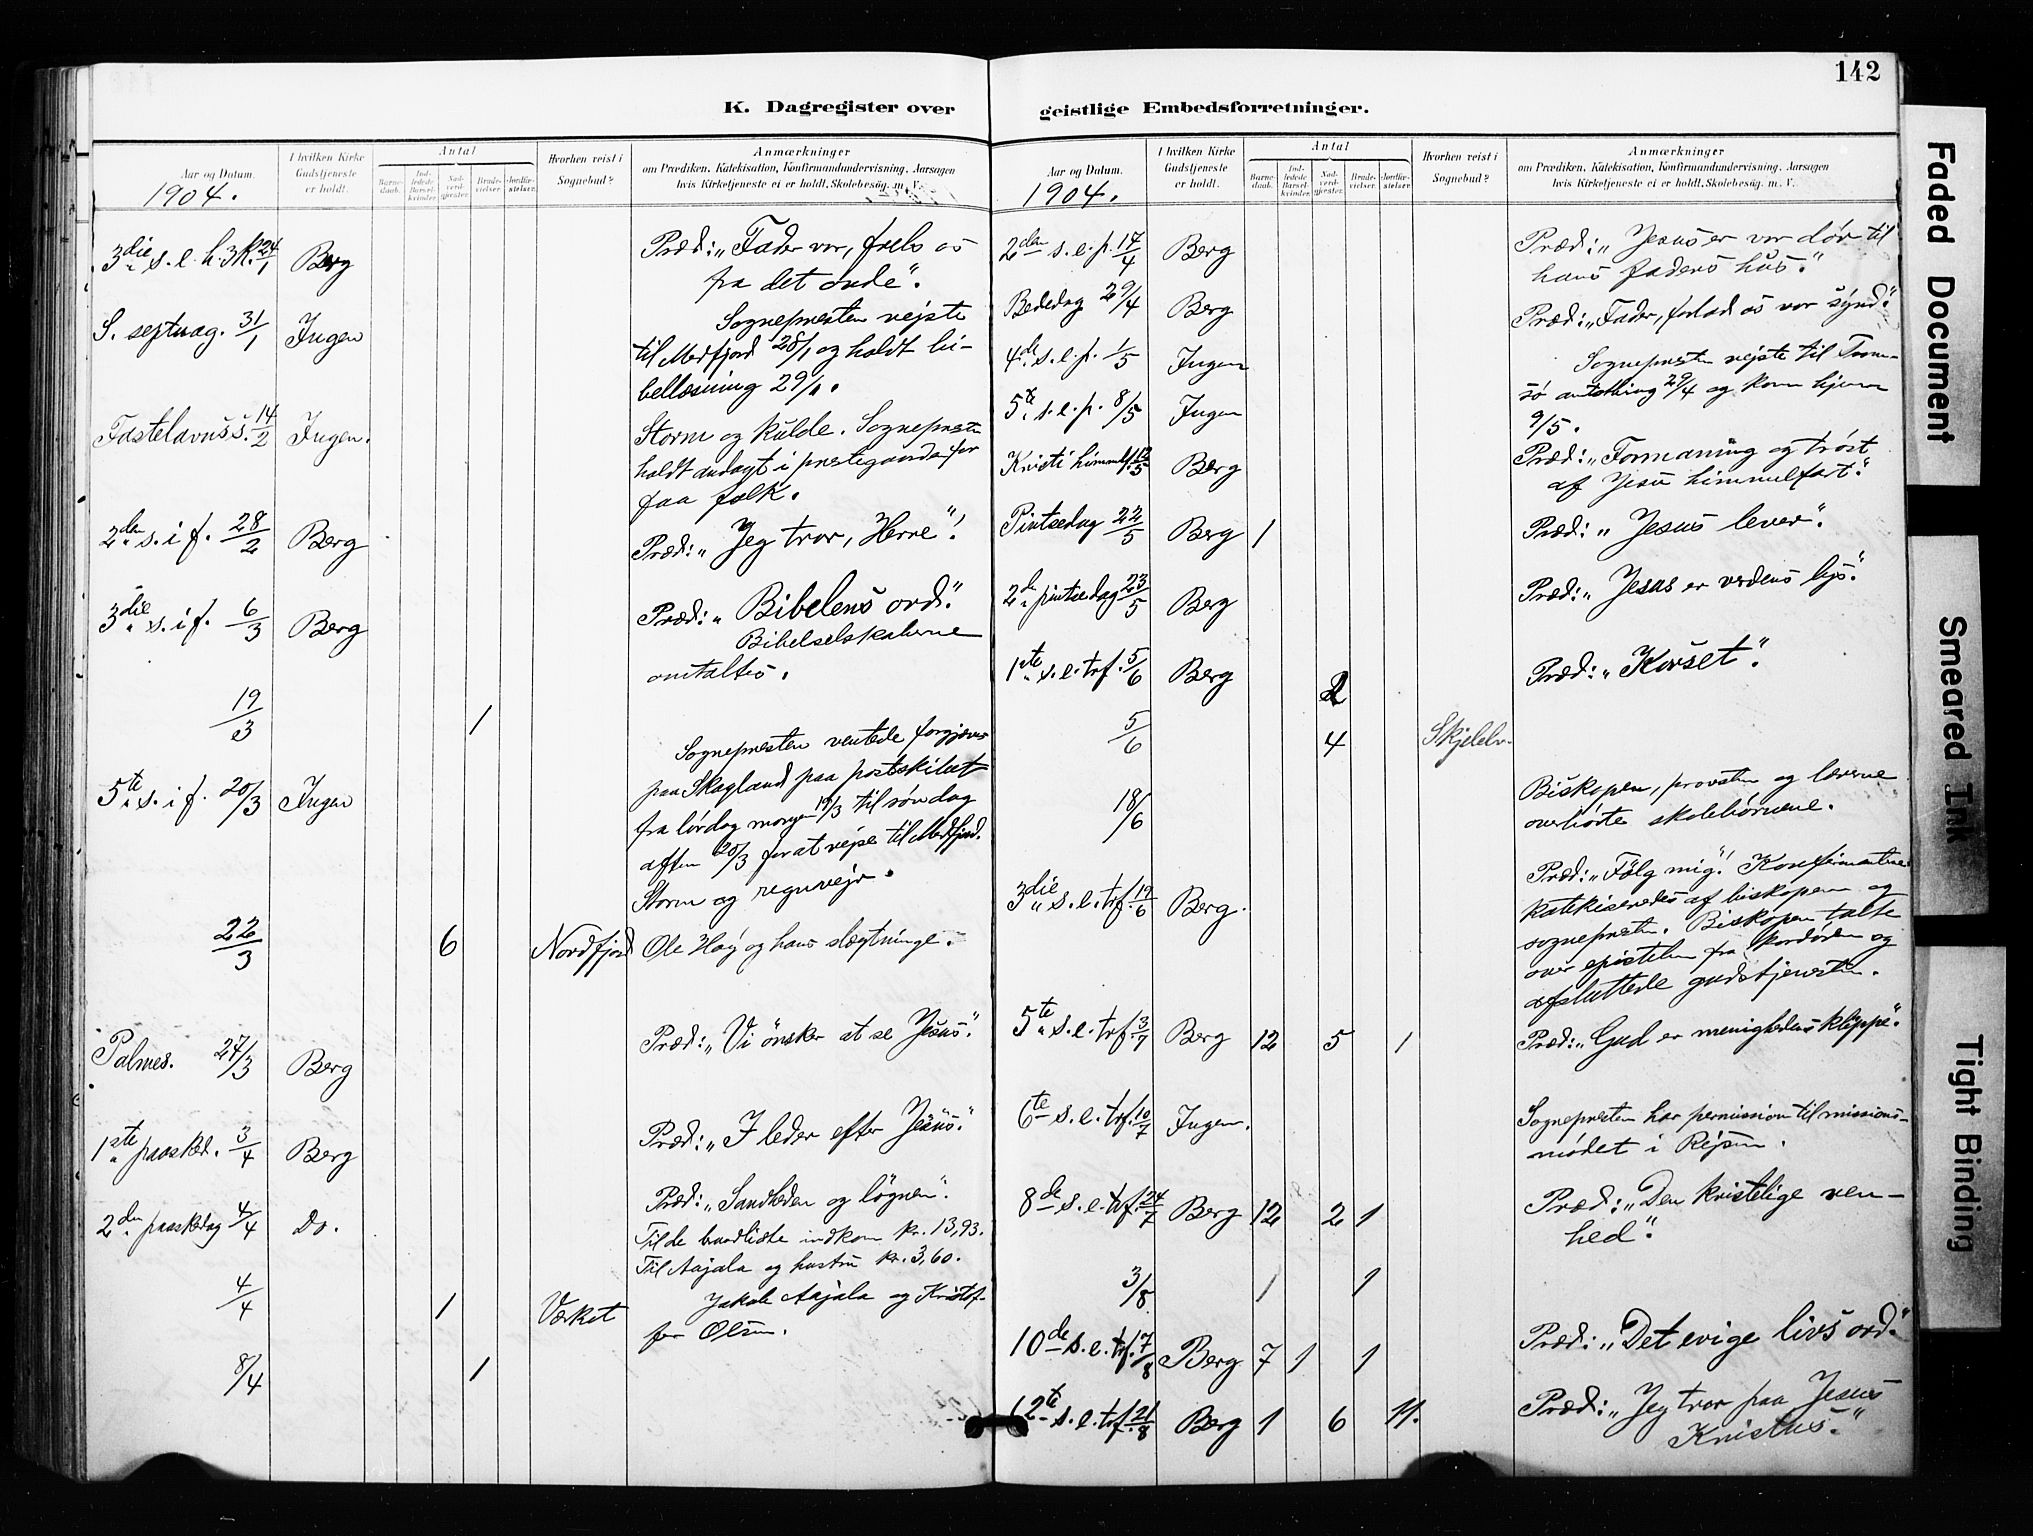 142
K. Dagregister over
Aar og Datum.
1904.
I hvilken Kirke Gudstjeneste er holdt.
Antal
Barnedaab.
Indledede Barselkvinder.
Nadverdgjester.
Brudevielser.
Jordfæstelser.
Hvorhen reist i Sognebud?
Anmærkninger
om Prædiken, Katekisation, Konfirmandundervisning, Aarsagen
hvis Kirketjeneste ei er holdt, Skolebesøg, m. V.
3die s. e. h. 3 k. 24/1 Berg Præd: „Fader vor, frels os
fra det onde“.
S. septuag. 31/1 Ingen Sognepresten rejste
til Medfjord 28/1 og holdt bi-
bellæsning 29/1.
Fastelavns s. 14/2 Ingen. Storm og kulde. Sognepresten
holdt andagt i prestegaarden for
faa folk.
2den s. i f. 28/2 Berg Præd: „Jeg tror, Herre“!
3die s. i f. 6/3 Berg Præd: „Bibelens ord“.
Bibelselskaberne
omtaltes.
19/3 1
5te s. i f. 20/3 Ingen Sognepresten ventede forgjæves
paa Skagland paa postskibet
fra lørdag morgen 19/3 til søndag
aften 20/3 for at rejse til Medfjord.
Storm og regnvejr.
22/3 6 Nordfjord Ole Høy og hans slægtninge.
Palmes. 27/3 Berg Præd: „Vi ønsker at se Jesus“.
1ste paasked. 3/4 Berg Præd: „I leder efter Jesus“.
2den paaskedag 4/4 Do. Præd: „Sandheden og løgnen“.
Til de indkom kr. 13,93.
Til Aajala og hustru kr. 3,60.
4/4 1 Værket Jakob Aajala og Kristof-
fer Olsen.
8/4 1
geistlige Embedsforretninger.
Aar og Datum.
1904.
I hvilken Kirke Gudstjeneste er holdt.
Antal
Barnedaab.
Indledede Barselkvinder.
Nadverdgjester.
Brudevielser.
Jordfæstelser.
Hvorhen reist i Sognebud?
Anmærkninger
om Prædiken, Katekisation, Konfirmandundervisning, Aarsagen
hvis Kirketjeneste ei er holdt, Skolebesøg, m. V.
2den s. e. p. 17/4 Berg Præd: „Jesus er vor dør til
hans faders hus“.
Bededag 29/4 Berg Præd: „Fader, forlad os vor synd“.
4de s. e. p. 1/5 Ingen Sognepresten rejste til Trom-
sø 29/4 og kom hjem
9/5.
5te s. e. p. 8/5 Ingen
Kristi himmelf. 12/5 Berg Præd: „Formaning og trøst
af Jesu himmelfart“.
Pintsedag 22/5 Berg 1 Præd: „Jesus lever“.
2de pintsedag 23/5 Berg Præd: „Jesus er verdens lys“.
1ste s. e. trf. 5/6 Berg 2 Præd: „Korset“.
5/6 4 Skjelelv.
18/6 Biskopen, provsten og lærerne
overhørte skolebørnene.
3die s. e. trf. 19/6 Berg. Præd: „Følg mig“! Konfirmanterne
katekiseredes af biskopen og
sognepresten. Biskopen talte
over epistelen fra kordøren og
afsluttede gudstjenesten.
5te s. e. trf. 3/7 Berg 12 5 1 Præd: „Gud er menighedens klippe“.
6te s. e. trf. 10/7 Ingen. Sognepresten har permission til missions-
mødet i Rejsen.
8de s. e. trf. 24/7 Berg 12 2 1 Præd: „Den kristelige ven-
hed“.
3/8 1 1
10de s. e. trf. 7/8 Berg 7 1 1 Præd: „Det evige livs ord“.
12te s. e. trf. 21/8 Berg 1 6 11. Præd: „Jeg tror paa Jesus
Kristus“.
Faded Document
Smeared Ink
Tight Binding